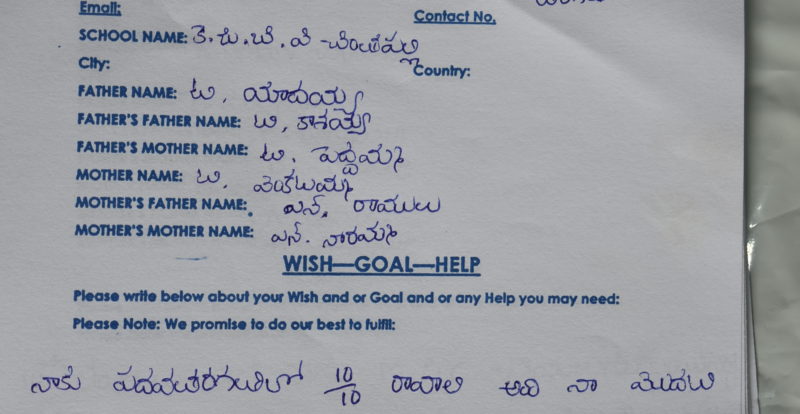 Email:
Contact No.
SCHOOL NAME: కె.జి.బి.వి - చింతపల్లి
City:
Country:
FATHER NAME: టి. యాదయ్య
FATHER'S FATHER NAME: టి, కాశయ్య
FATHER'S MOTHER NAME: టి. పెద్దమ్మ
MOTHER NAME: టి. వెంకటమ్మ
MOTHER'S FATHER NAME: ఎన్. రాములు
MOTHER'S MOTHER NAME: ఎన్. నారమ్మ
WISH—GOAL—HELP
Please write below about your Wish and or Goal and or any Help you may need:
Please Note: We promise to do our best to fulfil:
నాకు పదవతరగతిలో 10/10 రావాలి అది నా మొదటి